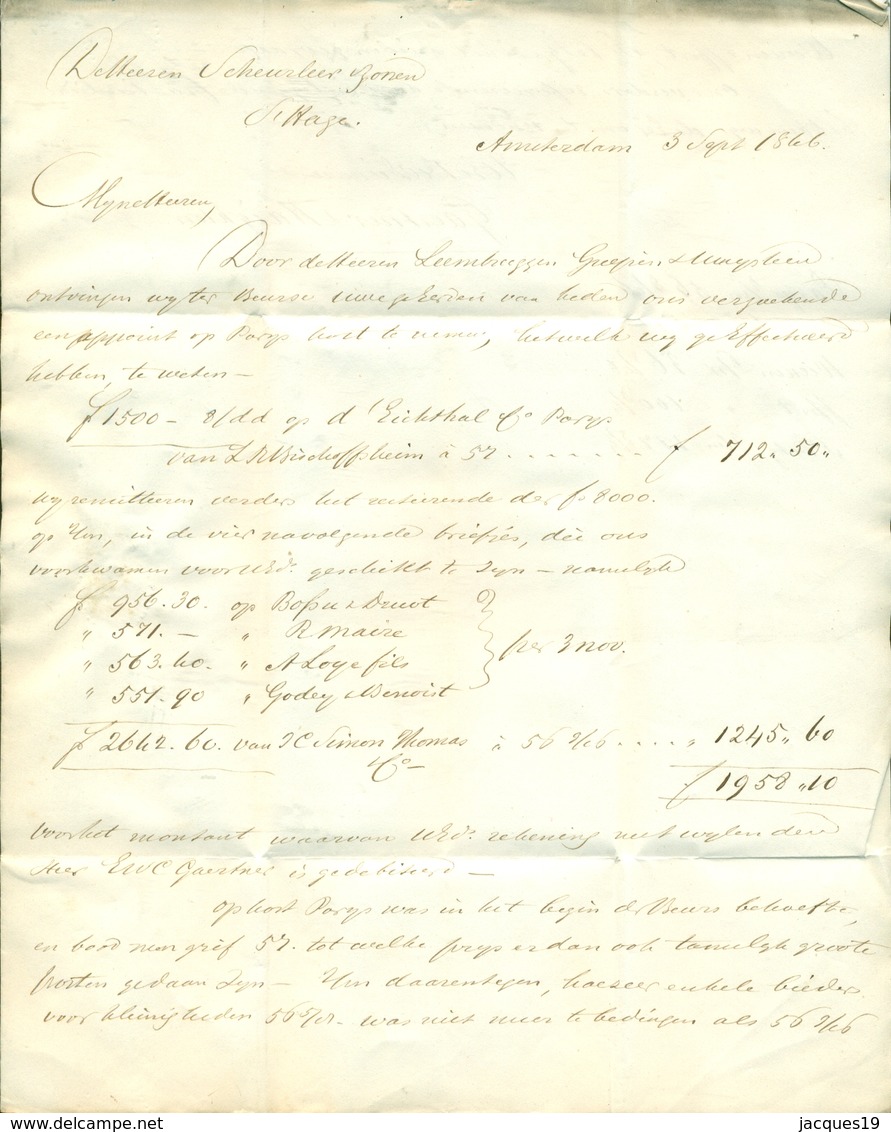 De Heeren Scheurleer & Zonen
S'Hage.
Amsterdam 3 Sept 1846.
Myne Heeren,
Door de Heeren Leembruggen Guepin & Muysken
ontvingen wy ter Beurse Uwe geëerden van heden ons verzoekende
een appoint op Parys kort te nemen, hetwelk wy geEffectueerd
hebben, te weten —
f 1500 — 8/dd op d'Eichthal & Co Parys
van L R Bischoffsheim à 57 . . . . . . . f 712„ 50„
wy remitteeren verders het resteerende der fs 8000.
op Ym, in de vier navolgende briefjes, die ons
voorkwamen voor UEd. geschikt te zyn — namelyk
fs 956.30. op Bossu & Druot
„ 571. — „ R Maire
„ 563.40. „ A Loye fils
„ 551.90 „ Godey & Benoist
per 3 nov.
fs 2642.60. van J C Simon Thomas à 56 9/16 . . . . „ 1245„ 60
& Co —
f 1958„10
voor het montant waarvan UEd. rekening met wylen den
Heer EWC Gaertner is gedebiteerd —
op kort Parys was in het begin der Beurs behoefte,
en bood men grif 57. tot welke prys er dan ook tamelyk groote
posten gedaan zyn — Ym daarentegen, hoezeer enkele bieders
voor kleinigheden 56 5/8 — was niet meer te bedingen als 56 9/16
www.delcampe.net
jacques19